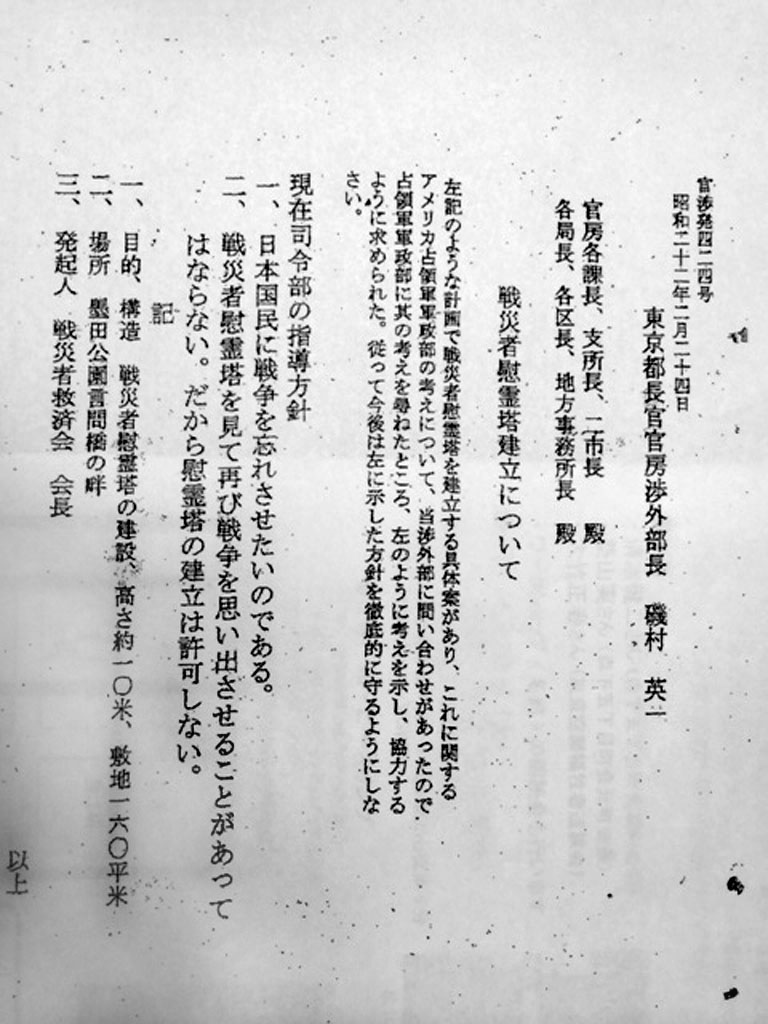 官渉発四二四号
昭和二十二年二月二十四日
東京都長官官房渉外部長　磯村　英一
官房各課長、支所長、二市長　殿
各局長、各区長、地方事務所長　殿
戦災者慰霊塔建立について
左記のような計画で戦災者慰霊塔を建立する具体案があり、これに関する
アメリカ占領軍軍政部の考えについて、当渉外部に問い合わせがあったので
占領軍軍政部に其の考えを尋ねたところ、左のように考えを示し、協力する
ように求められた。従って今後は左に示した方針を徹底的に守るようにしな
さい。
現在司令部の指導方針
一、日本国民に戦争を忘れさせたいのである。
二、戦災者慰霊塔を見て再び戦争を思い出させることがあって
はならない。だから慰霊塔の建立は許可しない。
記
一、目的、構造　戦災者慰霊塔の建設、高さ約一〇米、敷地一六〇平米
二、場所　墨田公園言問橋の畔
三、発起人　戦災者救済会　会長
以上